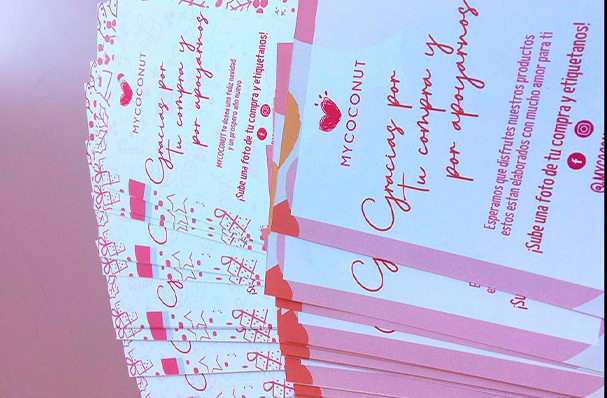 MYCOCONUT
Gracias por
tu compra y
por apoyarnos
MYCOCONUT te desea una feliz navidad
y un prospero año nuevo
¡Sube una foto de tu compra y etiquetanos!
MYCOCONUT
Gracias por
tu compra y
por apoyarnos
Esperamos que disfrutes nuestros productos
estos estan elaborados con mucho amor para ti
¡Sube una foto de tu compra y etiquetanos!